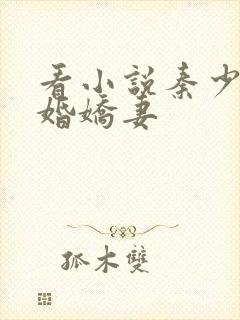 看小說秦少
婚嬌妻
孤木雙